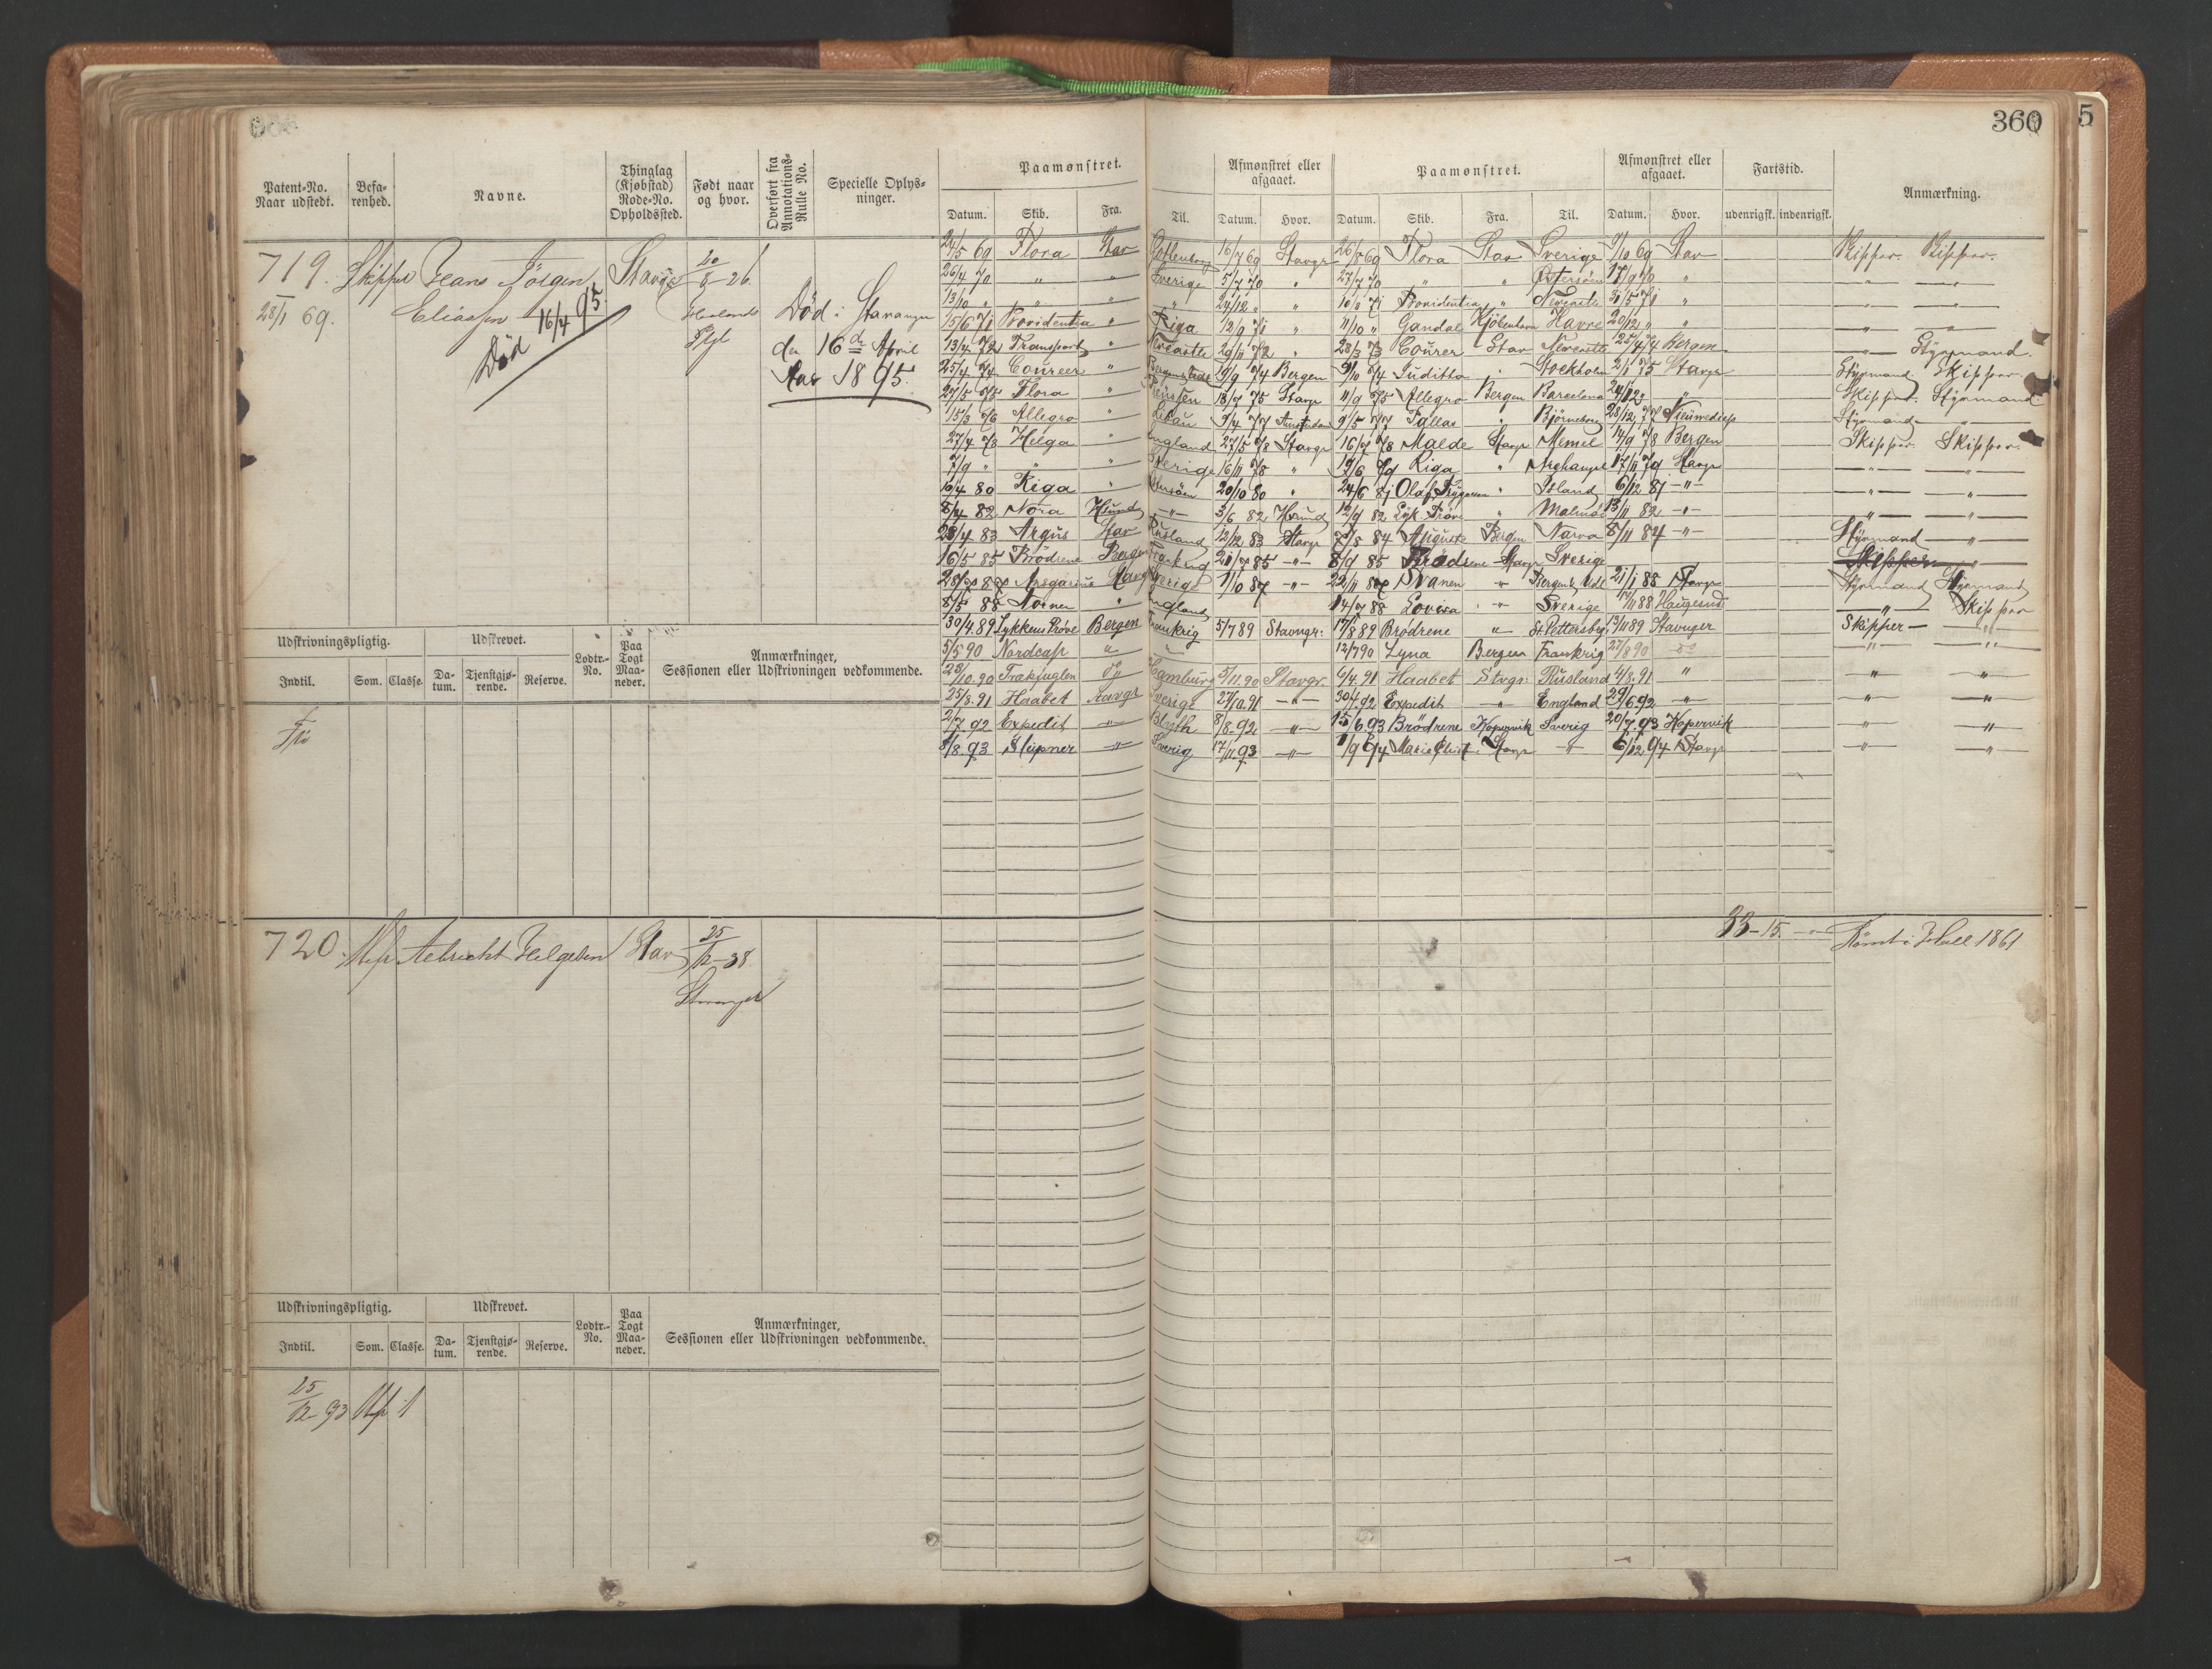 360
5
Patent-No. Naar udstedt.
Befarenhed.
Navne.
Thinglag (Kjøbstad) Rode-No. Opholdssted.
Født naar og hvor.
Overført fra Annotations-Rulle No.
Specielle Oplysninger.
Paamønstret.
Afmønstret eller afgaaet.
Paamønstret.
Afmønstret eller afgaaet.
Fartstid.
Anmærkning.
Datum. Skib. Fra. Til. Datum. Hvor. Datum. Skib. Fra. Til. Datum. Hvor. udenrigsk. indenrigsk.
719. Skipper Jens Jörgen
Eliassen
28/1 69.
Död 16/4 95.
20/8 - 26
Död i Stavanger
den 16de April
Aar 1895.
24/5 69 Flora Stav Gottenborg 16/7 69 Stavgr 26/8 69 Flora Stav Sverige 9/10 69 Stav Skipper. Skipper.
26/4 70 " " Sverige 5/7 70 " 27/7 70 " " Östersöen 17/9 70 "
13/10 " " " " 24/12 " " 10/3 71 Providentia " Newcastle 31/5 71 "
15/6 71 Providentia " Riga 12/9 71 " 11/10 " Gandal Kjöbenhavn Havre 20/12 " "
13/4 72 Transport " Newcastle 29/11 72 " 28/3 73 Courier Stav Newcastle 25/4 74 Bergen " Styrmand.
25/4 74 Courier " 19/9 74 Bergen 9/10 74 Juditha " Stockholm 2/1 75 Stavgr Styrmand Skipper.
27/5 75 Flora " Preussen 18/9 75 Stavgr 11/9 75 Allegro Bergen Barcelona Skipper. Styrmand
15/3 76 Allegro " Libau 9/4 77 Amsterdam 9/5 77 Pallas " Björneborg 28/12 77 Styrmand "
27/4 78 Helga " England 27/5 78 Stavgr 16/7 78 Malde Stavgr Memel 14/9 78 Bergen Skipper. Skipper.
7/9 " " " Sverige 16/11 78 " 19/6 79 Riga " Archangel 17/11 79 Stavgr
10/4 80 Riga " Östersöen 20/10 80 " 24/6 81 Olaf Trygvason " Island 6/12 81 - " -
8/4 82 Nora Hsund - " - 3/6 82 Hsund 12/9 82 Lyk. Pröve " Malmö 13/11 82 - " -
23/4 83 Argus Stav Rusland 12/12 83 Stavgr 7/8 84 Auguste Bergen Narva 8/11 84 - " - Styrmand "
16/5 85 Brödrene Bergen Frankrig 21/7 85 - " - 8/9 85 Brödrene Stavgr Sverige Skipper "
28/7 87 Ansgarius Stavgr Sverige 1/10 87 - " - 22/11 87 Svanen " 21/1 88 Stavgr Styrmand Styrmand
8/5 88 Nornen " England 14/7 88 Lovisa " Sverige 17/11 88 Haugesund " Skipper
30/4.89 Lykkens Pröve Bergen Frankrig 5/7 89 Stavngr. 17/8 89 Brödrene " St. Pettersborg 13/11 89 Stavnger Skipper - "
5/5 90 Nordcap " " 12/7 90 Lyna Bergen Frankrig 27/8 90 do " "
25/10.90 Trækfuglen do Hamburg 5/11.90 Stavgr. 6/4.91 Haabet Stvgr. Rusland 4/8.91 " " "
25/8.91 Haabet Stavgr Sverige 27/10.91 - " - 30/4.92 Expedit " England 29/6.92 " " "
2/7.92 Expedit - " - Blyth 8/8.92 - " - 15/6.93 Brödrene Kopervik Sverig 20/7.93 Kopervik " "
8/8.93 Sleipner - " - Sverig 17/11.93 - " - 1/9 94 Marie Christ. Stavgr - " - 6/12 94 Stavgr " "
Udskrivningspligtig. Udskrevet. Lodtr.-No. Paa Togt Maaneder. Anmærkninger, Sessionen eller Udskrivningen vedkommende.
Indtil. Som. Classe. Datum. Tjenstgjørende. Reserve.
Fri
720. Albricht Helgesen Stav 25/12 - 38
Stavanger
33 - 15. Römt i Hull 1861
Udskrivningspligtig. Udskrevet. Lodtr.-No. Paa Togt Maaneder. Anmærkninger, Sessionen eller Udskrivningen vedkommende.
Indtil. Som. Classe. Datum. Tjenstgjørende. Reserve.
25/12 93 1